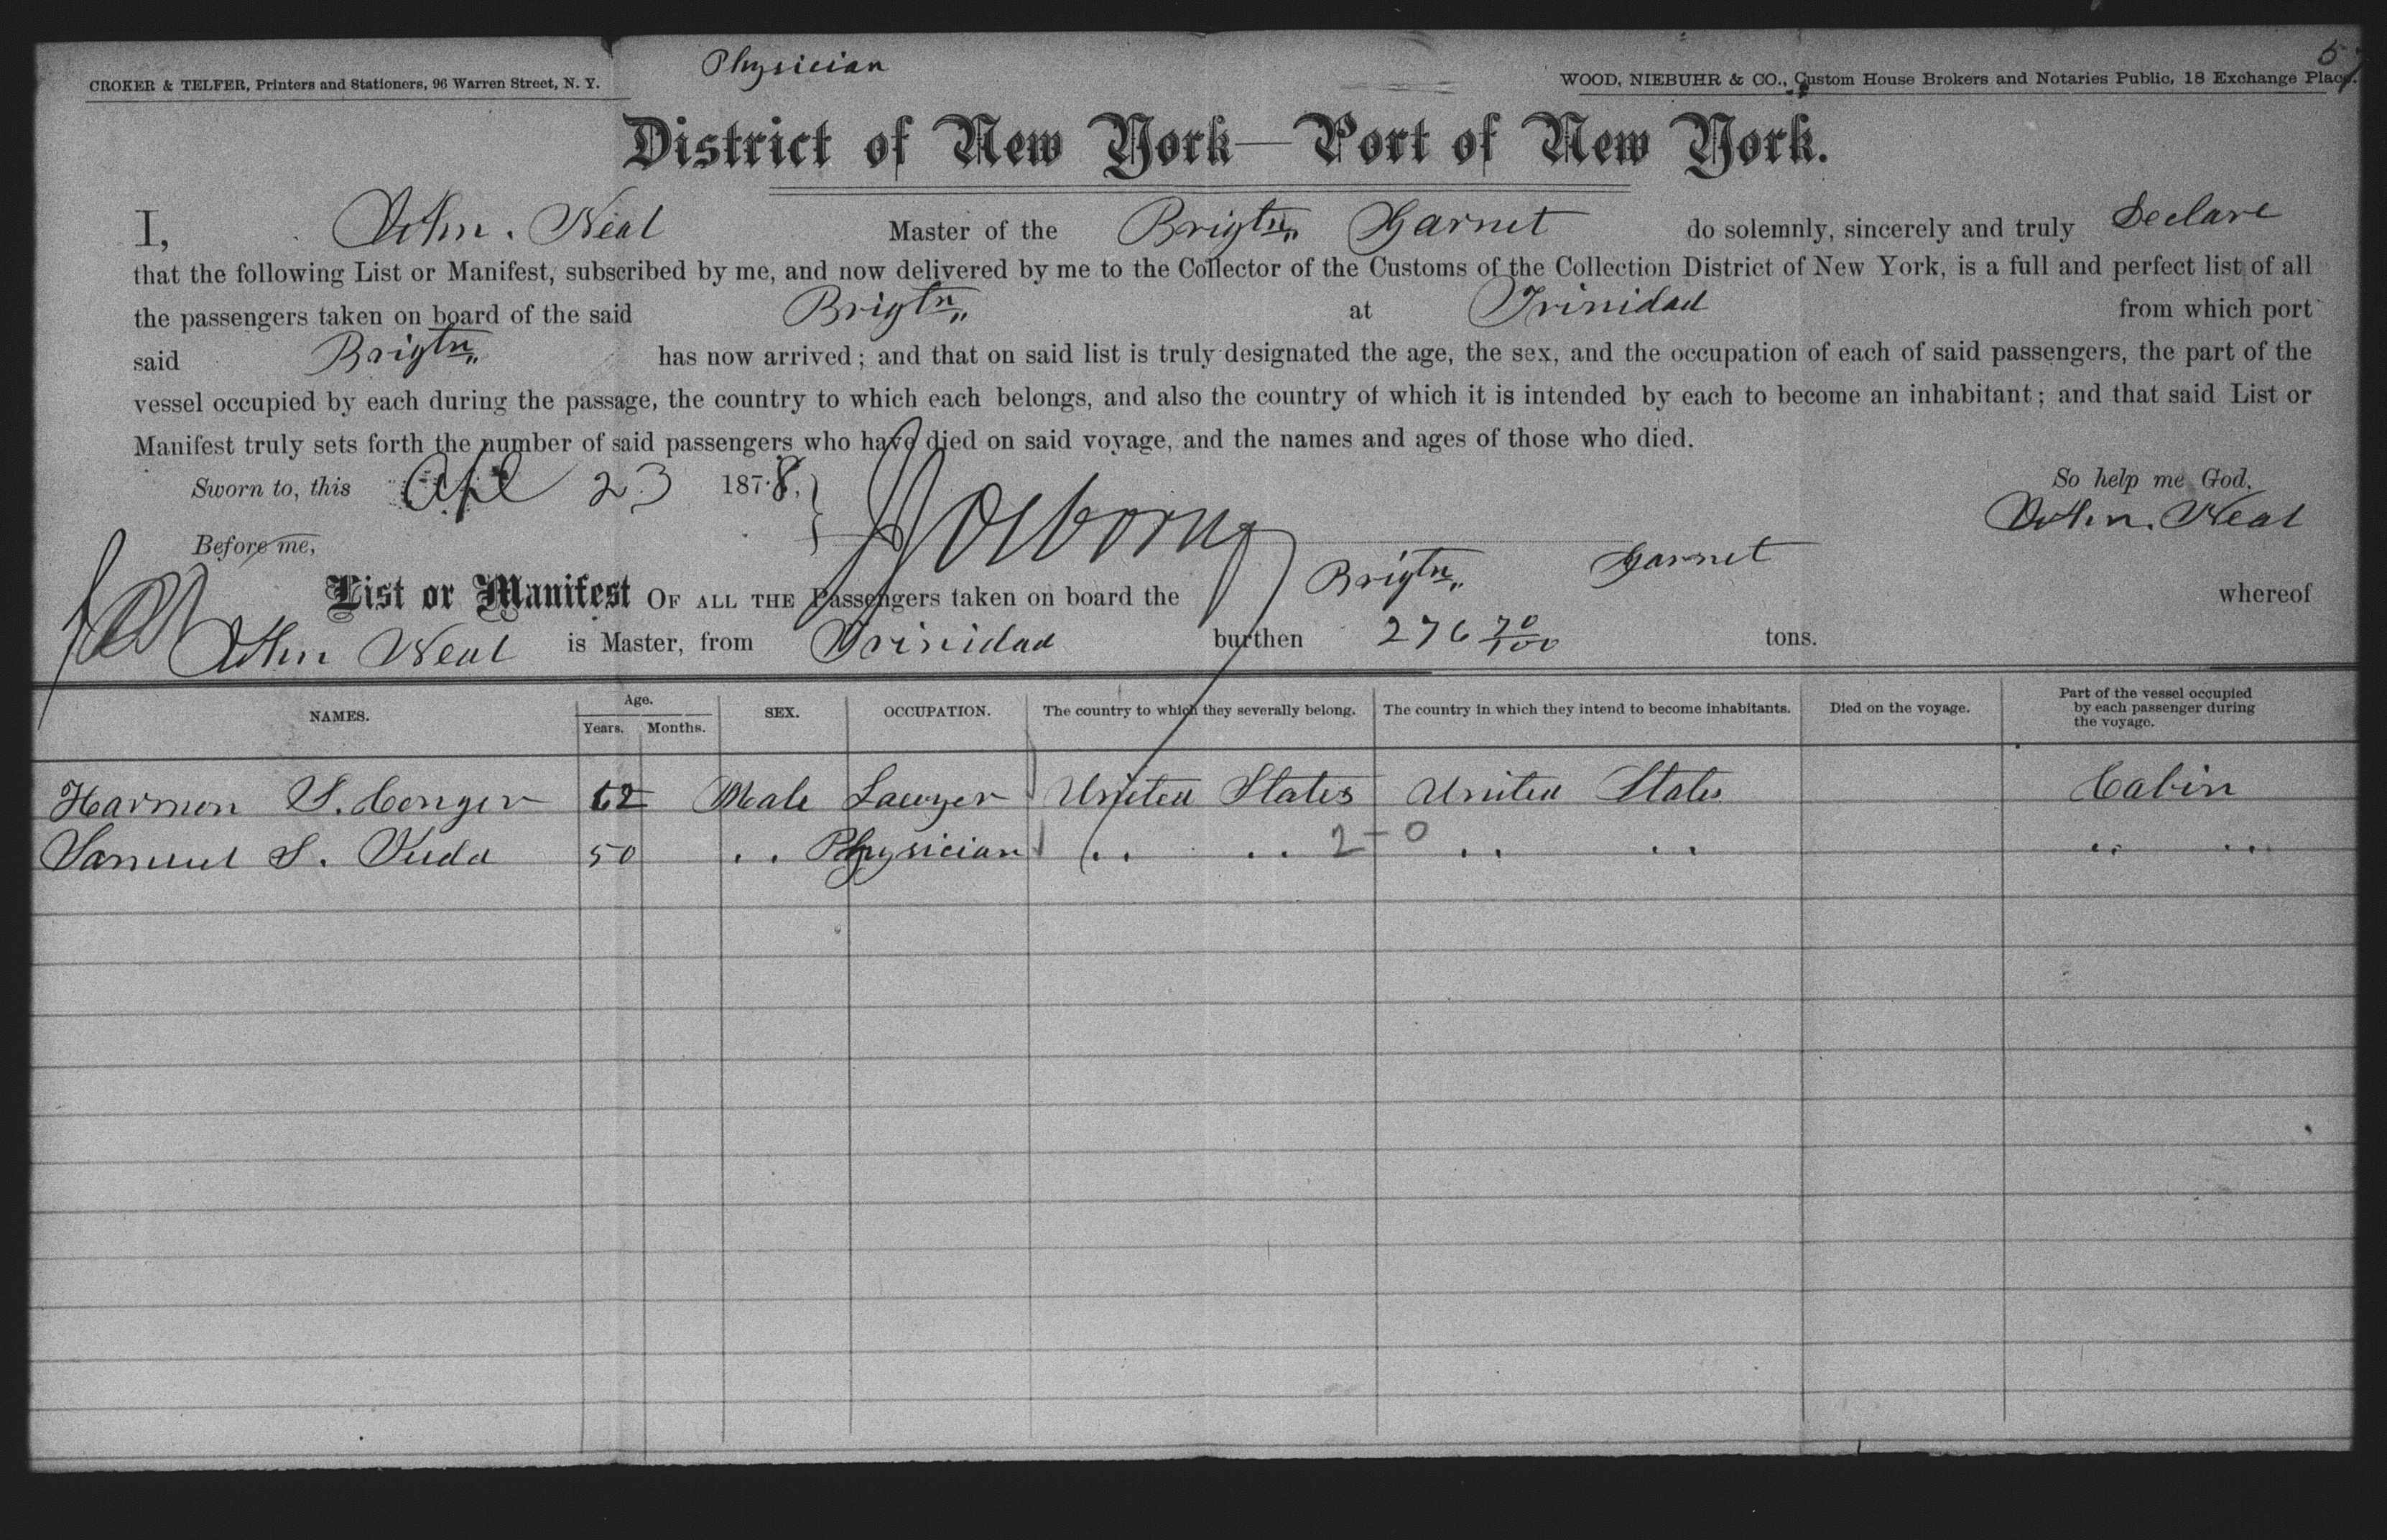 Physician
CROKER & TELFER, Printers and Stationers, 96 Warren Street, N. Y.
WOOD, NIEBUHR & CO., Custom House Brokers and Notaries Public, 18 Exchange Place.
District of New York—Port of New York.
I, John. Neal Master of the Brigtn Garnet do solemnly, sincerely and truly Declare
that the following List or Manifest, subscribed by me, and now delivered by me to the Collector of the Customs of the Collection District of New York, is a full and perfect list of all
the passengers taken on board of the said Brigtn at Trinidad from which port
said Brigtn has now arrived; and that on said list is truly designated the age, the sex, and the occupation of each of said passengers, the part of the
vessel occupied by each during the passage, the country to which each belongs, and also the country of which it is intended by each to become an inhabitant; and that said List or
Manifest truly sets forth the number of said passengers who have died on said voyage, and the names and ages of those who died.
Sworn to, this Apl 23 1878, So help me God,
Before me, Osborne John. Neal
List or Manifest OF ALL THE Passengers taken on board the Brigtn Garnet whereof
John Neal is Master, from Trinidad burthen 276 70/100 tons.
NAMES. Age. Years. Months. SEX. OCCUPATION. The country to which they severally belong. The country in which they intend to become inhabitants. Died on the voyage. Part of the vessel occupied by each passenger during the voyage.
Harmon S. Conger 62 Male Lawyer United States United States Cabin
Samuel S. 50 .. Physician .. .. 2-0 .. .. .. ..